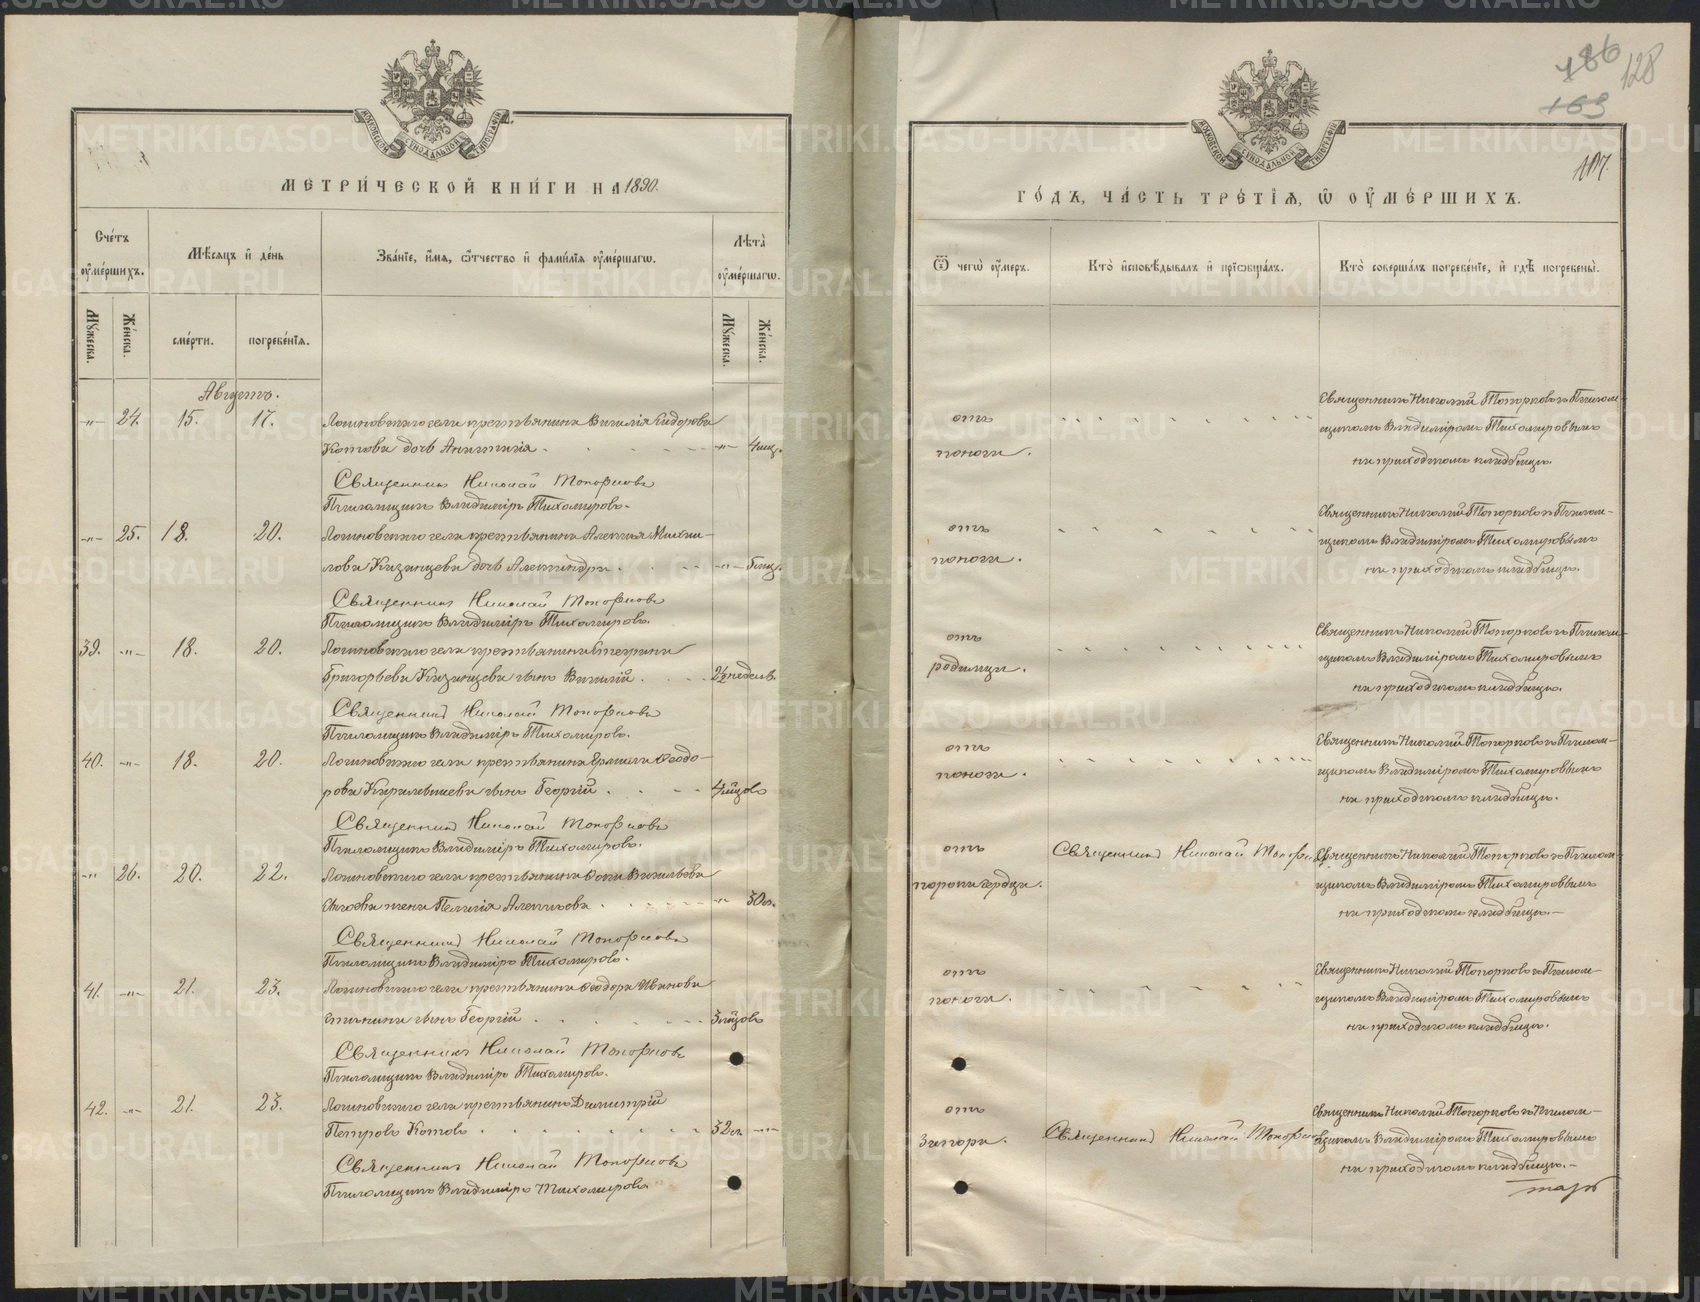 МОСКОВСКОЙ СѴНОДАЛЬНОЙ ТИПОГРАФІИ
МЕТРИ́ЧЕСКОЙ КНИ́ГИ НА 1890.
Сче́тъ оу҆ме́ршихъ.
Мѣ́сяцъ и҆ де́нь
Зва́нїе, и҆́мя, ѻ҆́тчество и҆ фами́лїя оу҆ме́ршагѡ.
Лѣта̀ оу҆ме́ршагѡ.
Мꙋ́жеска.
Же́нска.
сме́рти.
погребе́нїя.
Мꙋ́жеска.
Же́нска.
Августъ.
-"- 24. 15. 17. Логиновскаго села крестьянина Василія Сидорова
Котова дочь Анастасія -"- 4 мц.
Священникъ Николай Топорковъ
Псаломщикъ Владиміръ Тихомировъ.
-"- 25. 18. 20. Логиновскаго села крестьянина Алексѣя Михай-
лова Казанцева дочь Александра -"- 6 мц.
Священникъ Николай Топорковъ
Псаломщикъ Владиміръ Тихомировъ.
39. -"- 18. 20. Логиновскаго села крестьянина
Григорьева Казанцева сынъ Василій 2½ недель
Священникъ Николай Топорковъ
Псаломщикъ Владиміръ Тихомировъ.
40. -"- 18. 20. Логиновскаго села крестьянина Ермила Ѳеодо-
рова сынъ Георгій 4 мцовъ
Священникъ Николай Топорковъ
Псаломщикъ Владиміръ Тихомировъ.
-"- 26. 20. 22. Логиновскаго села крестьянина Васильева
жена Пелагія Алексѣева -"- 30 л.
Священникъ Николай Топорковъ
Псаломщикъ Владиміръ Тихомировъ.
41. -"- 21. 23. Логиновскаго села крестьянина Ѳеодора Иванова
сынъ Георгій 3 мцовъ
Священникъ Николай Топорковъ
Псаломщикъ Владиміръ Тихомировъ.
42. -"- 21. 23. Логиновскаго села крестьянинъ Димитрій
Петровъ Котовъ 32 л. -"-
Священникъ Николай Топорковъ
Псаломщикъ Владиміръ Тихомировъ
186 128
163
МОСКОВСКОЙ СѴНОДАЛЬНОЙ ТИПОГРАФІИ
ГО́ДЪ, ЧА́СТЬ ТРЕ́ТЇЯ, Ѡ҆ ОУ҆МЕ́РШИХЪ.
Ѿ чегѡ̀ оу҆́меръ.
Кто̀ и҆сповѣ́дывалъ и҆ прїѡбща́лъ.
Кто̀ соверша́лъ погребе́нїе, и҆ гдѣ̀ погребены̀.
отъ поноса.
Священникъ Николай Топорковъ съ Псалом-
щикомъ Владиміромъ Тихомировымъ
на приходскомъ кладбищѣ.
отъ поноса.
Священникъ Николай Топорковъ съ Псалом-
щикомъ Владиміромъ Тихомировымъ
на приходскомъ кладбищѣ.
отъ родимца.
Священникъ Николай Топорковъ съ Псалом-
щикомъ Владиміромъ Тихомировымъ
на приходскомъ кладбищѣ.
отъ поноса.
Священникъ Николай Топорковъ съ Псалом-
щикомъ Владиміромъ Тихомировымъ
на приходскомъ кладбищѣ.
отъ порока сердца.
Священникъ Николай Топорковъ
Священникъ Николай Топорковъ съ Псалом-
щикомъ Владиміромъ Тихомировымъ
на приходскомъ кладбищѣ.-
отъ поноса.
Священникъ Николай Топорковъ съ Псалом-
щикомъ Владиміромъ Тихомировымъ
на приходскомъ кладбищѣ.
отъ запора.
Священникъ Николай Топорковъ
Священникъ Николай Топорковъ съ Псалом-
щикомъ Владиміромъ Тихомировымъ
на приходскомъ кладбищѣ.-
METRIKI.GASO-URAL.RU